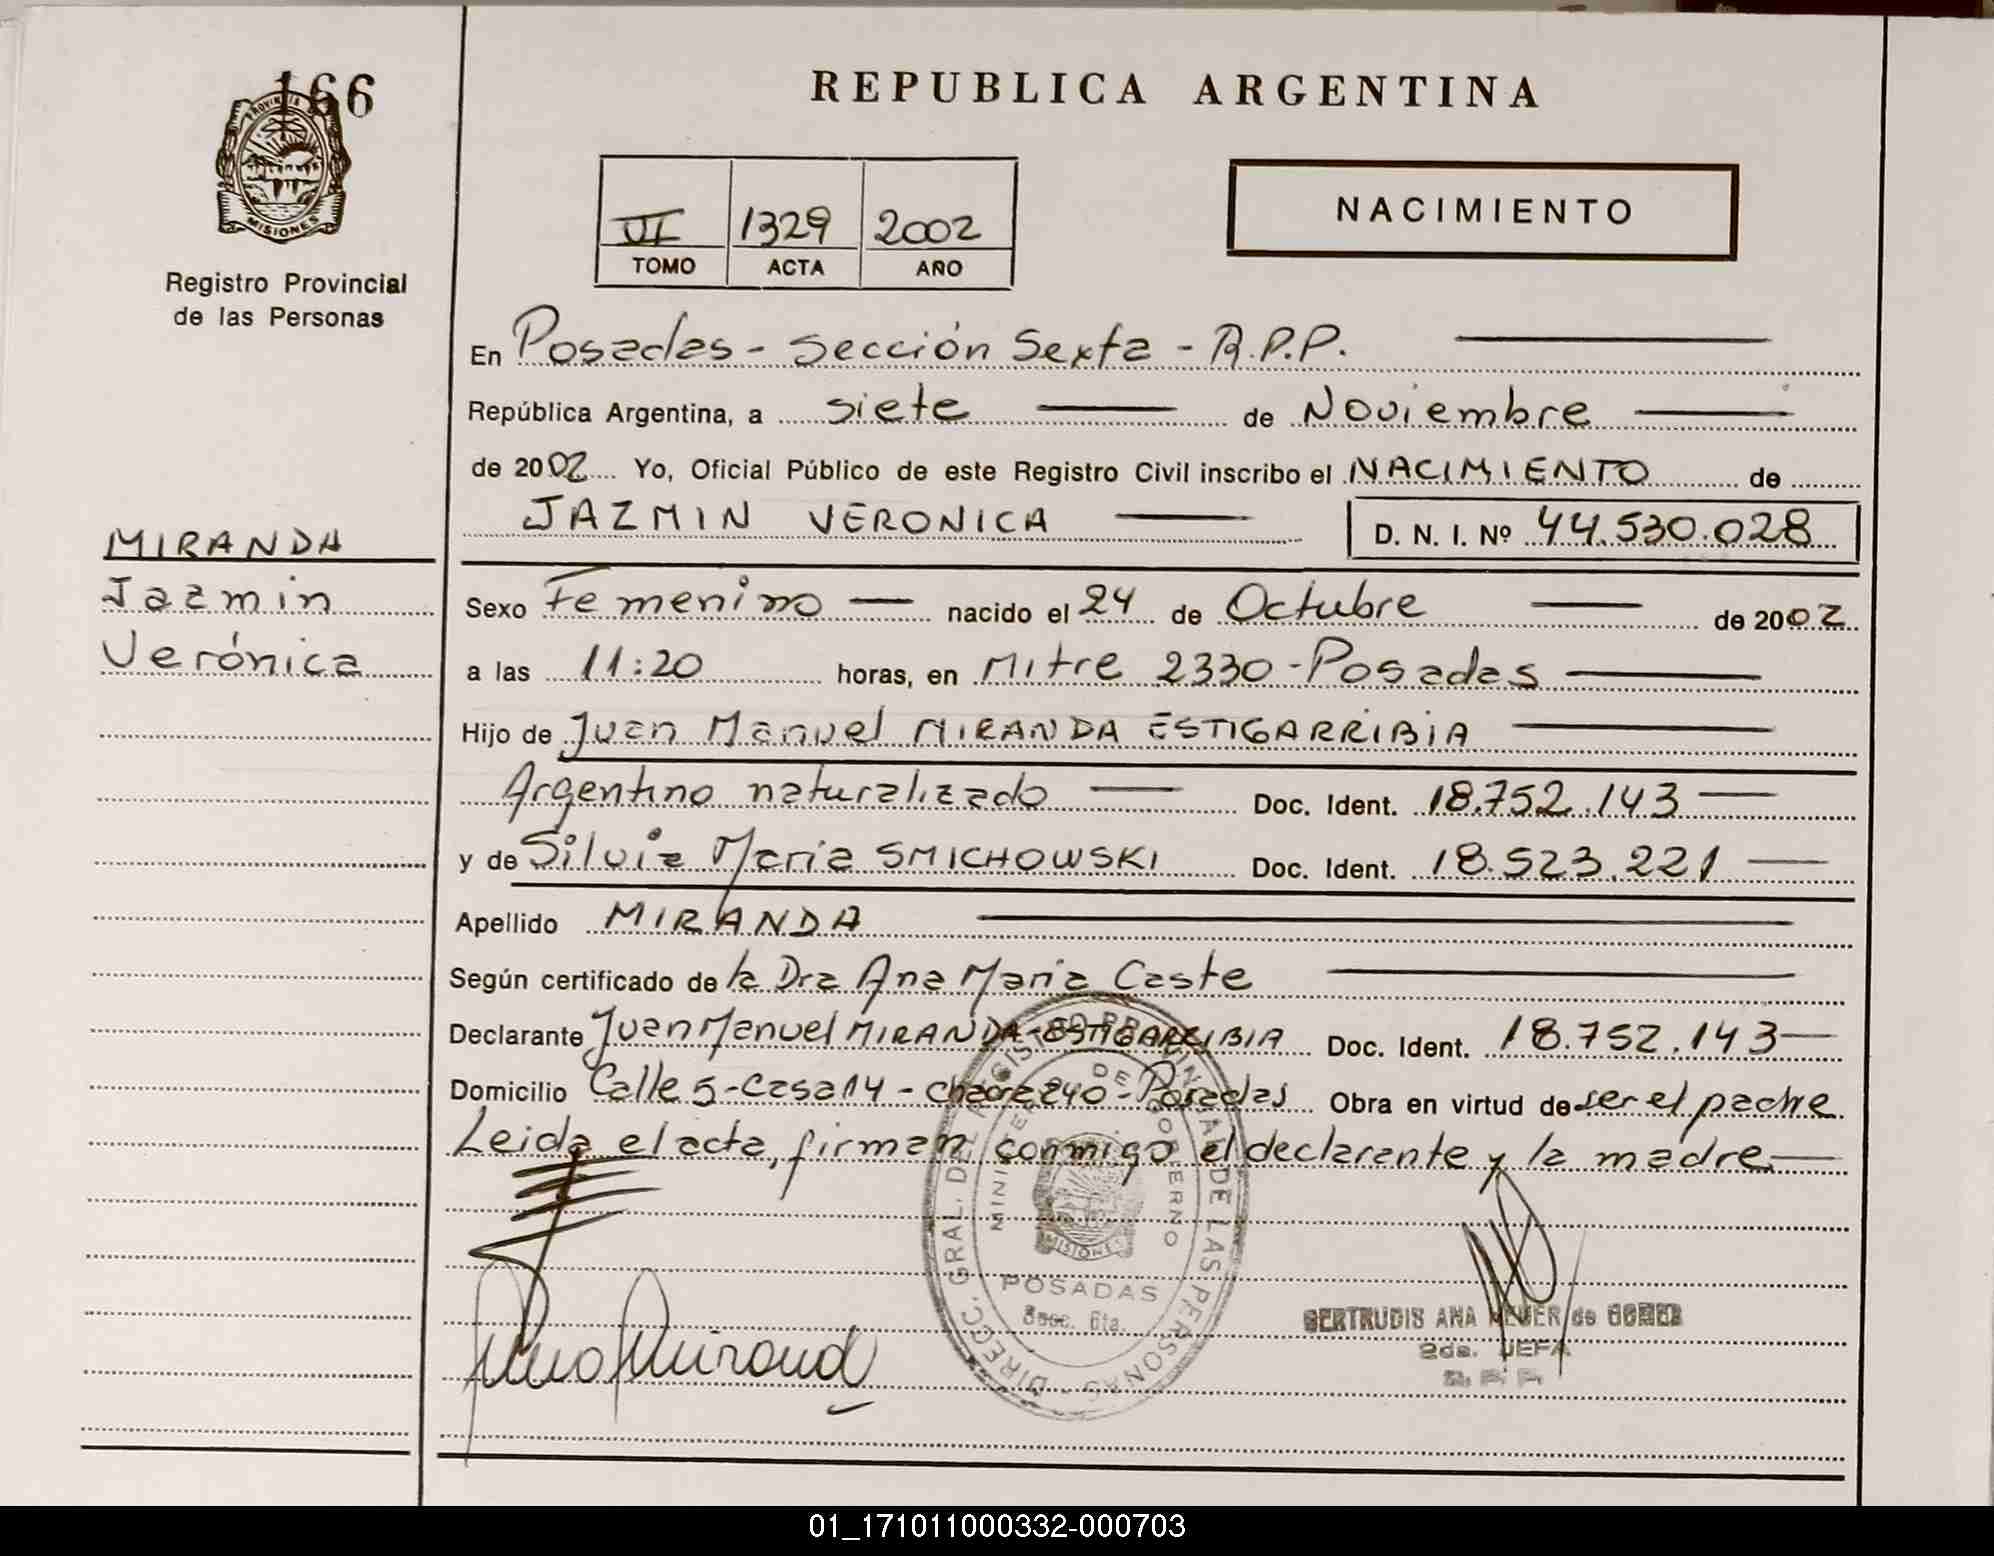 166
PROVINCIA
MISIONES
Registro Provincial
de las Personas
MIRANDA
Jazmin
Verónica
REPUBLICA ARGENTINA
VI 1329 2002
TOMO ACTA AÑO
NACIMIENTO
En Posadas - Sección Sexta - R.P.P.
República Argentina, a siete de Noviembre
de 2002 Yo, Oficial Público de este Registro Civil inscribo el NACIMIENTO de
JAZMIN VERONICA D. N. I. Nº 44.530.028
Sexo Femenino nacido el 24 de Octubre de 2002
a las 11:20 horas, en Mitre 2330 - Posadas
Hijo de Juan Manuel MIRANDA ESTIGARRIBIA
Argentino naturalizado Doc. Ident. 18.752.143
y de Silvia María SMICHOWSKI Doc. Ident. 18.523.221
Apellido MIRANDA
Según certificado de la Dra Ana María Caste
Declarante Juan Manuel MIRANDA-ESTIGARRIBIA Doc. Ident. 18.752.143
Domicilio Calle 5 - Casa 14 - Chacra 240 - Posadas Obra en virtud de ser el padre
Leida el acta, firman conmigo el declarante y la madre
DIRECC. GRAL. DEL REGISTRO PROVINCIAL DE LAS PERSONAS
MINISTERIO DE GOBIERNO
MISIONES
POSADAS
Secc. 6ta.
GERTRUDIS ANA de
2da. JEFA
01_171011000332-000703